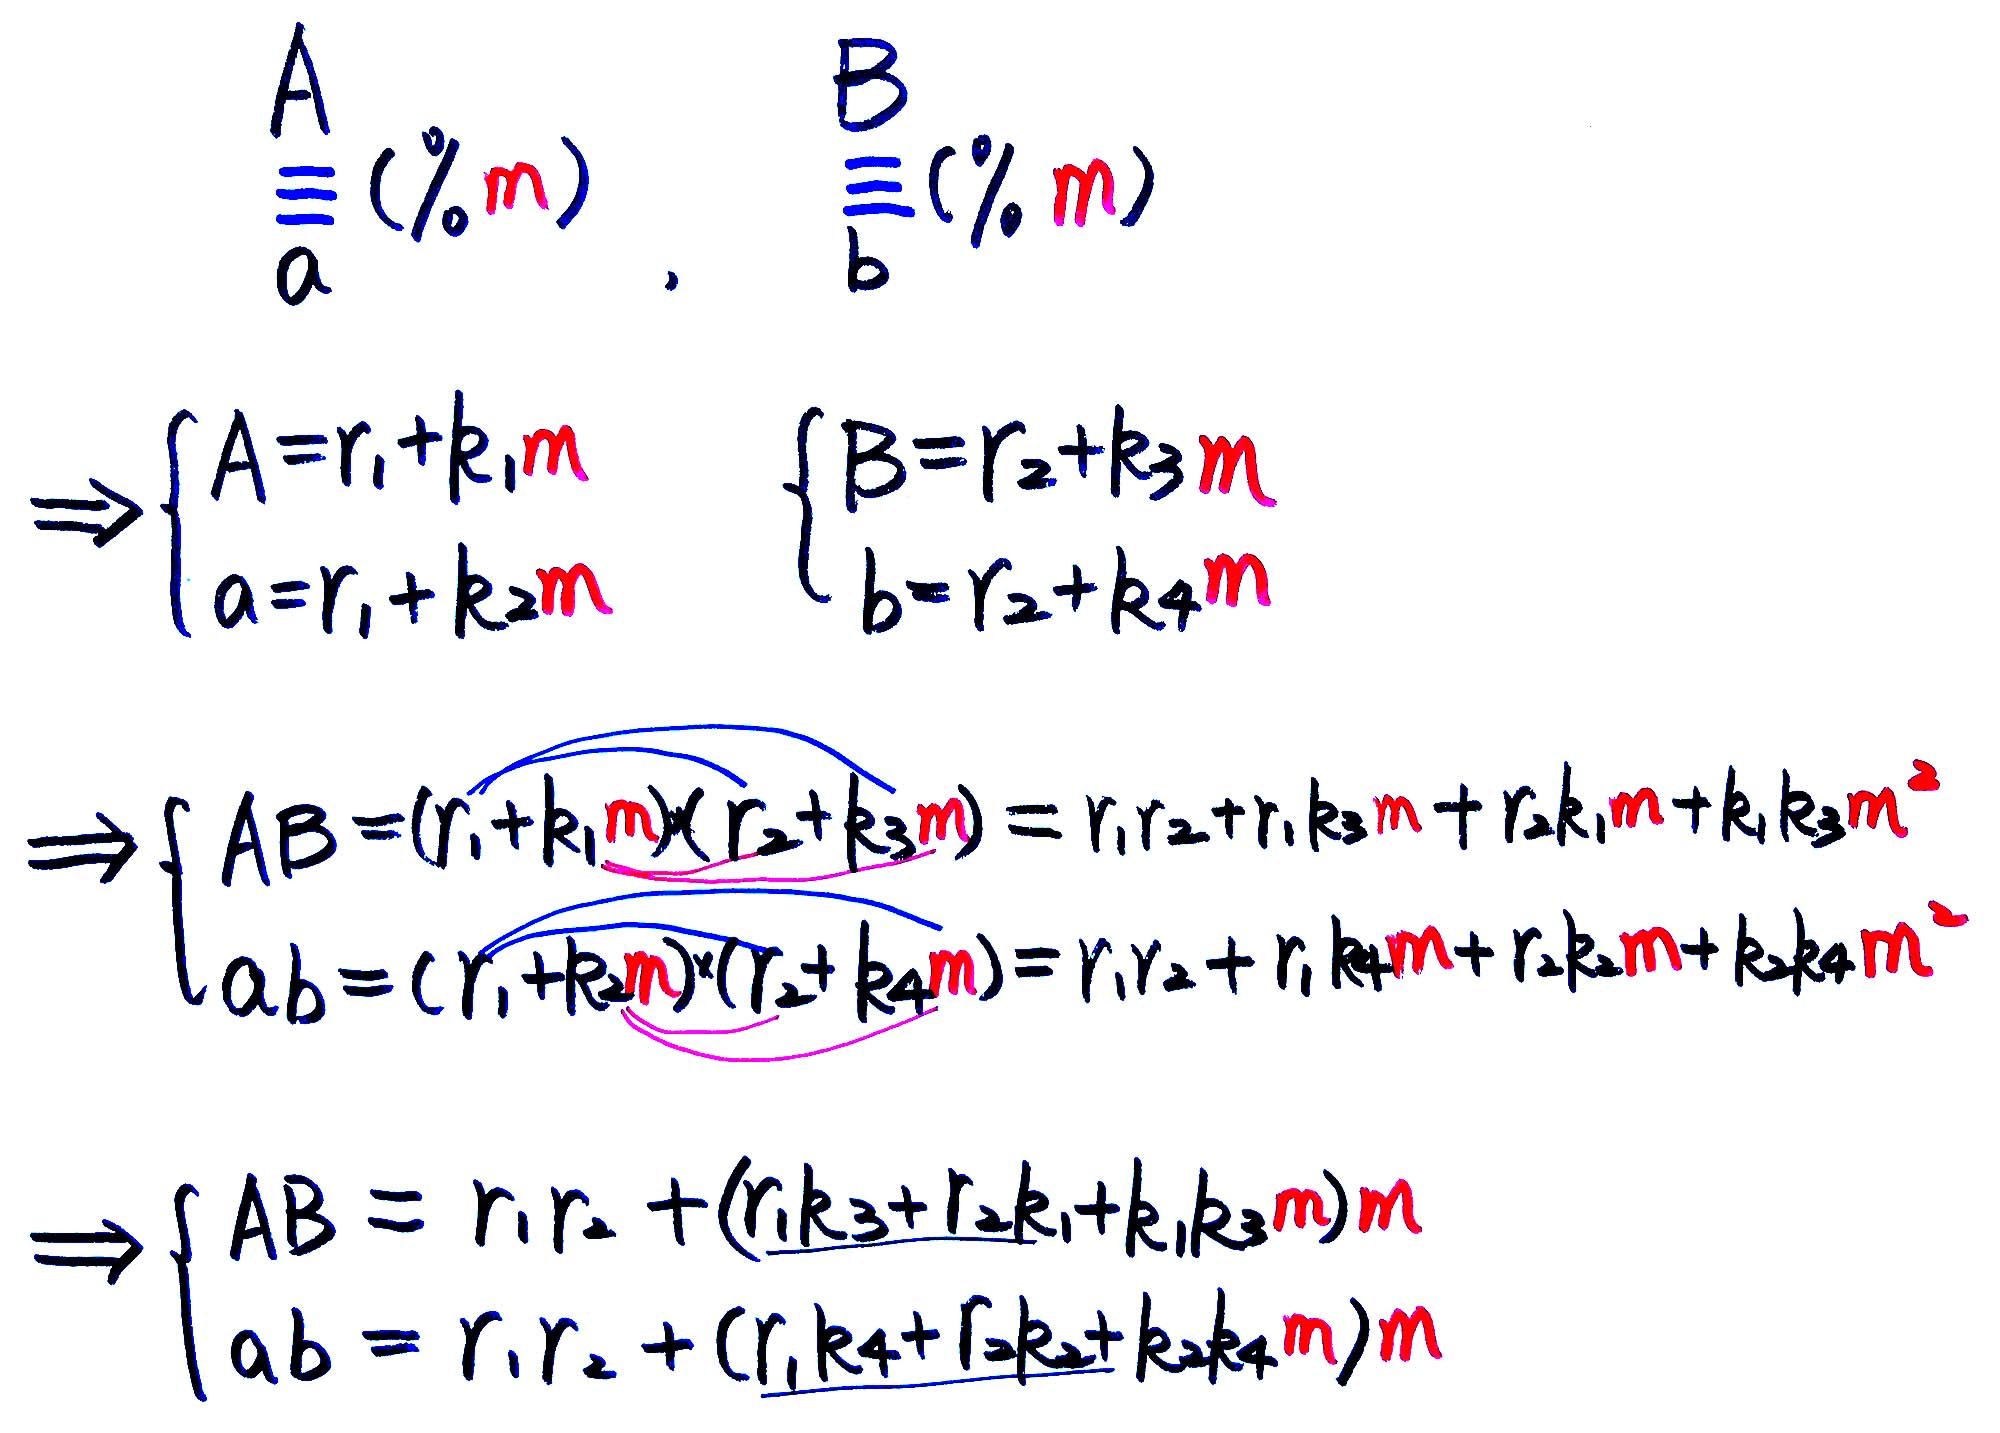 A B
≡ (% m) ≡ (% m)
a , b
⇒ { A = r₁ + k₁m { B = r₂ + k₃m
a = r₁ + k₂m b = r₂ + k₄m
⇒ { AB = (r₁ + k₁m)×(r₂ + k₃m) = r₁r₂ + r₁k₃m + r₂k₁m + k₁k₃m²
ab = (r₁ + k₂m)×(r₂ + k₄m) = r₁r₂ + r₁k₄m + r₂k₂m + k₂k₄m²
⇒ { AB = r₁r₂ + (r₁k₃ + r₂k₁ + k₁k₃m)m
ab = r₁r₂ + (r₁k₄ + r₂k₂ + k₂k₄m)m